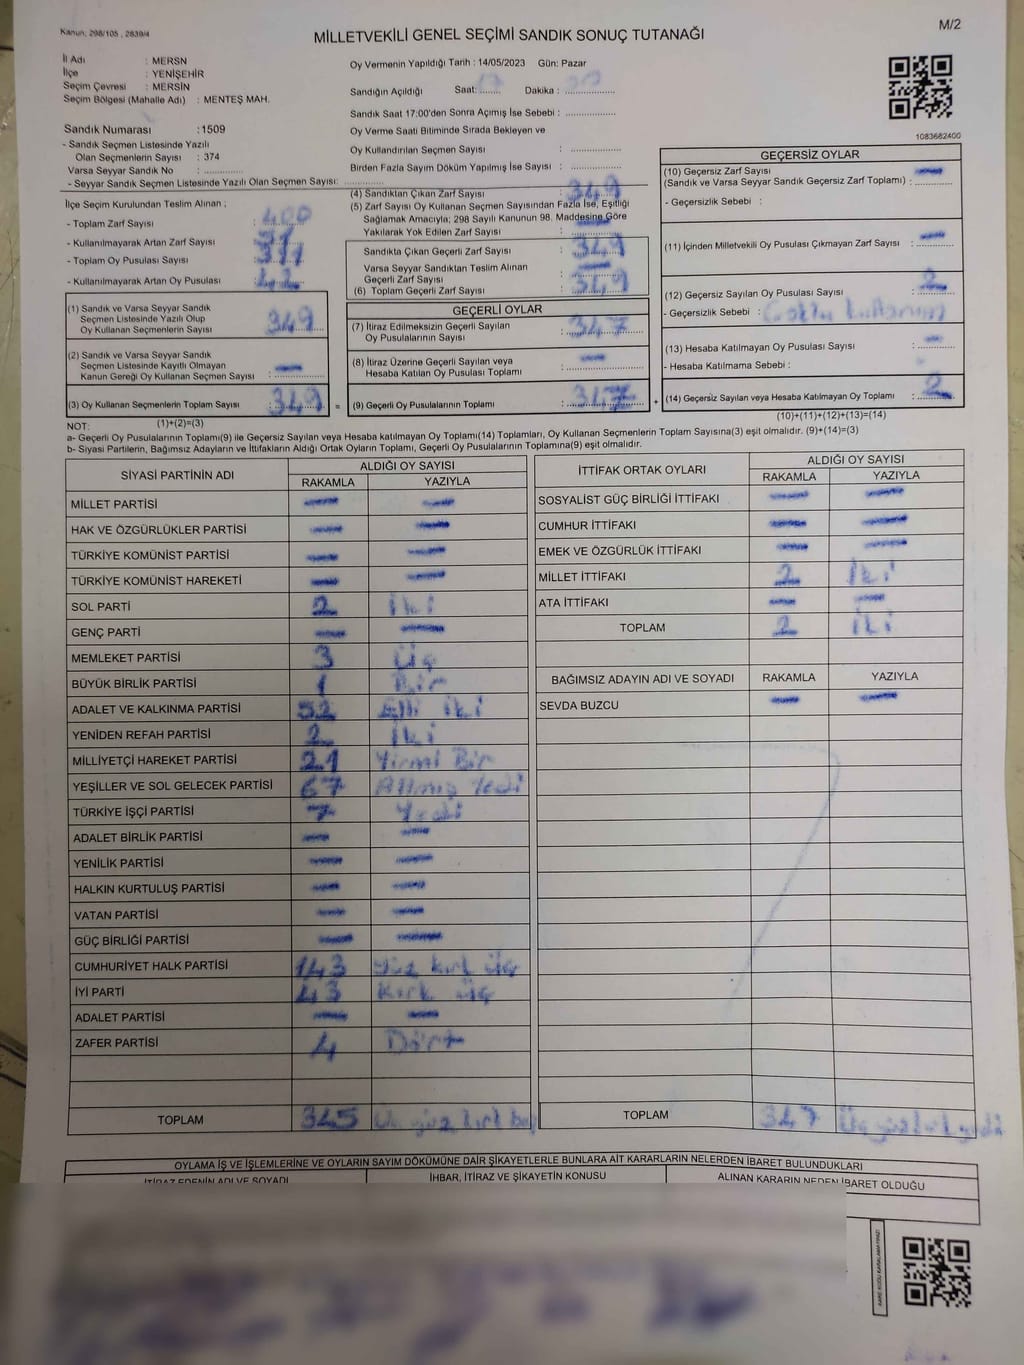 Kanun, 298/105 , 2839/4
M/2
MİLLETVEKİLİ GENEL SEÇİMİ SANDIK SONUÇ TUTANAĞI
İl Adı : MERSN
İlçe : YENİŞEHİR
Seçim Çevresi : MERSİN
Seçim Bölgesi (Mahalle Adı) : MENTEŞ MAH.
Sandık Numarası :1509
- Sandık Seçmen Listesinde Yazılı
Olan Seçmenlerin Sayısı : 374
Varsa Seyyar Sandık No : ..............
- Seyyar Sandık Seçmen Listesinde Yazılı Olan Seçmen Sayısı: ..............
Oy Vermenin Yapıldığı Tarih : 14/05/2023 Gün: Pazar
Sandığın Açıldığı Saat: 17 Dakika : 
Sandık Saat 17:00'den Sonra Açımış İse Sebebi : ..............
Oy Verme Saati Bitiminde Sırada Bekleyen ve
Oy Kullandırılan Seçmen Sayısı : ..............
Birden Fazla Sayım Döküm Yapılmış İse Sayısı : ..............
1083682400
İlçe Seçim Kurulundan Teslim Alınan ;
- Toplam Zarf Sayısı : 400
- Kullanılmayarak Artan Zarf Sayısı :
- Toplam Oy Pusulası Sayısı :
- Kullanılmayarak Artan Oy Pusulası : 42
(1) Sandık ve Varsa Seyyar Sandık
Seçmen Listesinde Yazılı Olup
Oy Kullanan Seçmenlerin Sayısı : 349
(2) Sandık ve Varsa Seyyar Sandık
Seçmen Listesinde Kayıtlı Olmayan
Kanun Gereği Oy Kullanan Seçmen Sayısı : —
(3) Oy Kullanan Seçmenlerin Toplam Sayısı : 349
(4) Sandıktan Çıkan Zarf Sayısı : 349
(5) Zarf Sayısı Oy Kullanan Seçmen Sayısından Fazla İse, Eşitliği
Sağlamak Amacıyla; 298 Sayılı Kanunun 98. Maddesine Göre
Yakılarak Yok Edilen Zarf Sayısı : —
Sandıkta Çıkan Geçerli Zarf Sayısı : 349
Varsa Seyyar Sandıktan Teslim Alınan
Geçerli Zarf Sayısı : —
(6) Toplam Geçerli Zarf Sayısı : 349
GEÇERLİ OYLAR
(7) İtiraz Edilmeksizin Geçerli Sayılan
Oy Pusulalarının Sayısı : 347
(8) İtiraz Üzerine Geçerli Sayılan veya
Hesaba Katılan Oy Pusulası Toplamı : —
= (9) Geçerli Oy Pusulalarının Toplamı : 347 +
GEÇERSİZ OYLAR
(10) Geçersiz Zarf Sayısı
(Sandık ve Varsa Seyyar Sandık Geçersiz Zarf Toplamı) : —
- Geçersizlik Sebebi :
(11) İçinden Milletvekili Oy Pusulası Çıkmayan Zarf Sayısı : —
(12) Geçersiz Sayılan Oy Pusulası Sayısı : 2
- Geçersizlik Sebebi :
(13) Hesaba Katılmayan Oy Pusulası Sayısı : —
- Hesaba Katılmama Sebebi :
(14) Geçersiz Sayılan veya Hesaba Katılmayan Oy Toplamı : 2
NOT: (1)+(2)=(3)
(10)+(11)+(12)+(13)=(14)
a- Geçerli Oy Pusulalarının Toplamı(9) ile Geçersiz Sayılan veya Hesaba katılmayan Oy Toplamı(14) Toplamları, Oy Kullanan Seçmenlerin Toplam Sayısına(3) eşit olmalıdır. (9)+(14)=(3)
b- Siyasi Partilerin, Bağımsız Adayların ve İttifakların Aldığı Ortak Oyların Toplamı, Geçerli Oy Pusulalarının Toplamına(9) eşit olmalıdır.
SİYASİ PARTİNİN ADI ALDIĞI OY SAYISI
RAKAMLA YAZIYLA
MİLLET PARTİSİ — —
HAK VE ÖZGÜRLÜKLER PARTİSİ — —
TÜRKİYE KOMÜNİST PARTİSİ — —
TÜRKİYE KOMÜNİST HAREKETİ — —
SOL PARTİ 2 İki
GENÇ PARTİ — —
MEMLEKET PARTİSİ 3 Üç
BÜYÜK BİRLİK PARTİSİ 1 Bir
ADALET VE KALKINMA PARTİSİ 52 Elli İki
YENİDEN REFAH PARTİSİ 2 İki
MİLLİYETÇİ HAREKET PARTİSİ 21 Yirmi Bir
YEŞİLLER VE SOL GELECEK PARTİSİ 67 Altmış Yedi
TÜRKİYE İŞÇİ PARTİSİ 7 Yedi
ADALET BİRLİK PARTİSİ — —
YENİLİK PARTİSİ — —
HALKIN KURTULUŞ PARTİSİ — —
VATAN PARTİSİ — —
GÜÇ BİRLİĞİ PARTİSİ — —
CUMHURİYET HALK PARTİSİ 143 Yüz kırk üç
İYİ PARTİ 43 Kırk üç
ADALET PARTİSİ — —
ZAFER PARTİSİ 4 Dört
TOPLAM 345 Üç yüz kırk beş
İTTİFAK ORTAK OYLARI ALDIĞI OY SAYISI
RAKAMLA YAZIYLA
SOSYALİST GÜÇ BİRLİĞİ İTTİFAKI — —
CUMHUR İTTİFAKI — —
EMEK VE ÖZGÜRLÜK İTTİFAKI — —
MİLLET İTTİFAKI 2 İki
ATA İTTİFAKI — —
TOPLAM 2 İki
BAĞIMSIZ ADAYIN ADI VE SOYADI RAKAMLA YAZIYLA
SEVDA BUZCU — —
TOPLAM 347 Üç yüz kırk yedi
OYLAMA İŞ VE İŞLEMLERİNE VE OYLARIN SAYIM DÖKÜMÜNE DAİR ŞİKAYETLERLE BUNLARA AİT KARARLARIN NELERDEN İBARET BULUNDUKLARI
İTİRAZ EDENİN ADI VE SOYADI İHBAR, İTİRAZ VE ŞİKAYETİN KONUSU ALINAN KARARIN NEDEN İBARET OLDUĞU